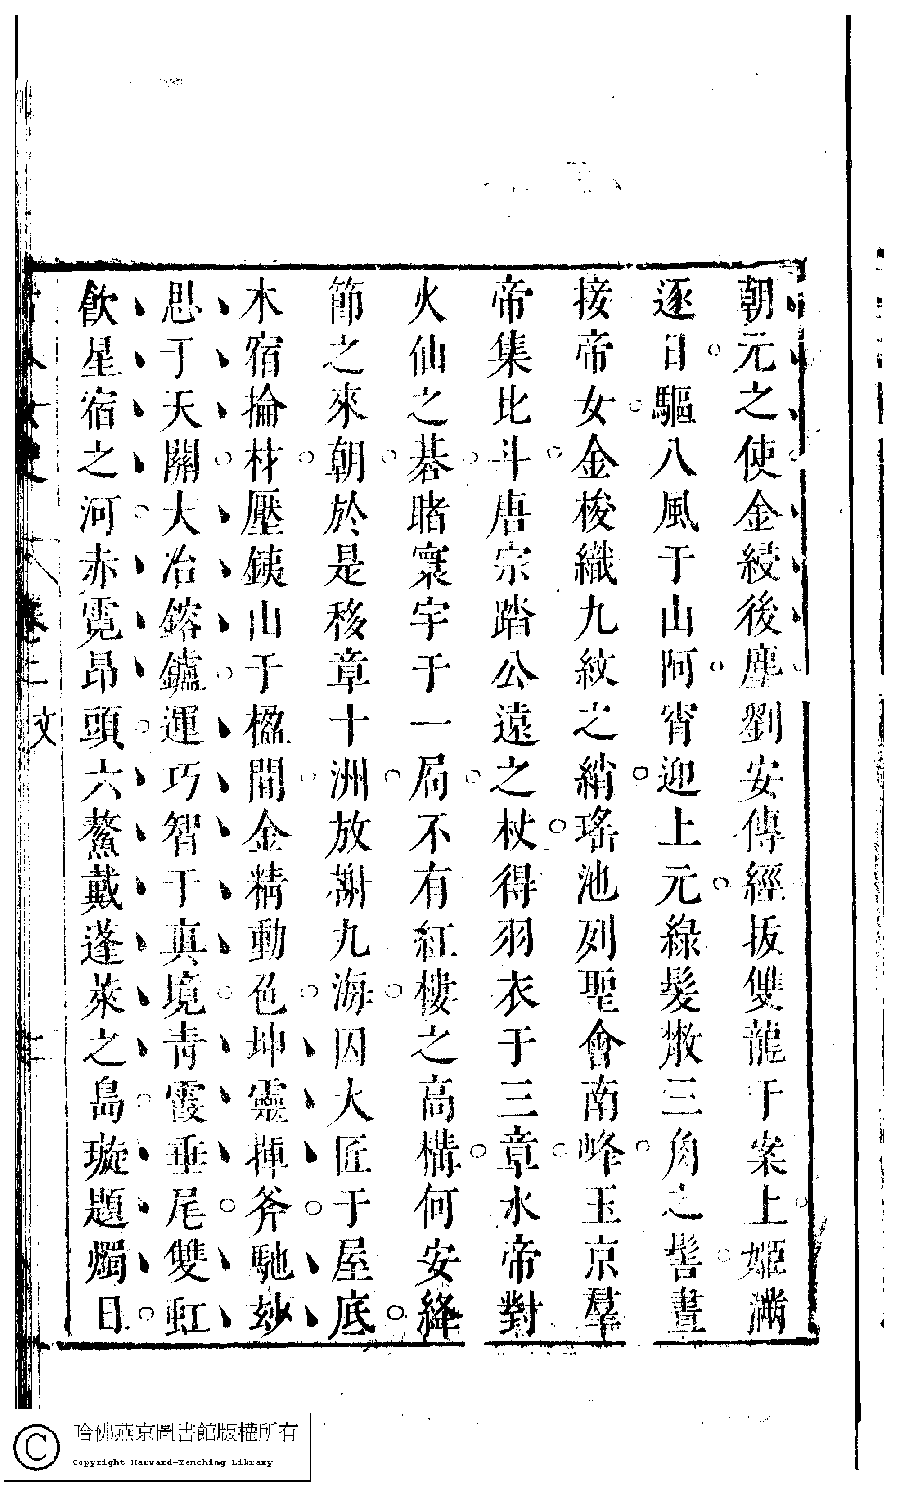 朝元之使金綬後塵劉安傳經扳雙龍于案上姬滿
逐日驅八風于山阿宵迎上元綠髮散三角之髻晝
接帝女金梭織九紋之綃瑤池列聖會南峰玉京羣
帝集北斗唐宗踏公遠之杖得羽衣于三章水帝對
火仙之碁賭寰宇于一局不有紅樓之高構何安絳
節之來朝於是移章十洲放榭九海囚大匠于屋底
木宿掄材壓鉄山于楹間金精動色坤靈揮斧馳玅
思于天關大冶鎔鑪運巧智于真境青霞垂尾雙虹
飲星宿之河赤霓昂頭六鰲戴蓬萊之島璇題燭日
卷二 文
哈佛燕京圖書館版權所有
Copyright Harvard-Yenching Library